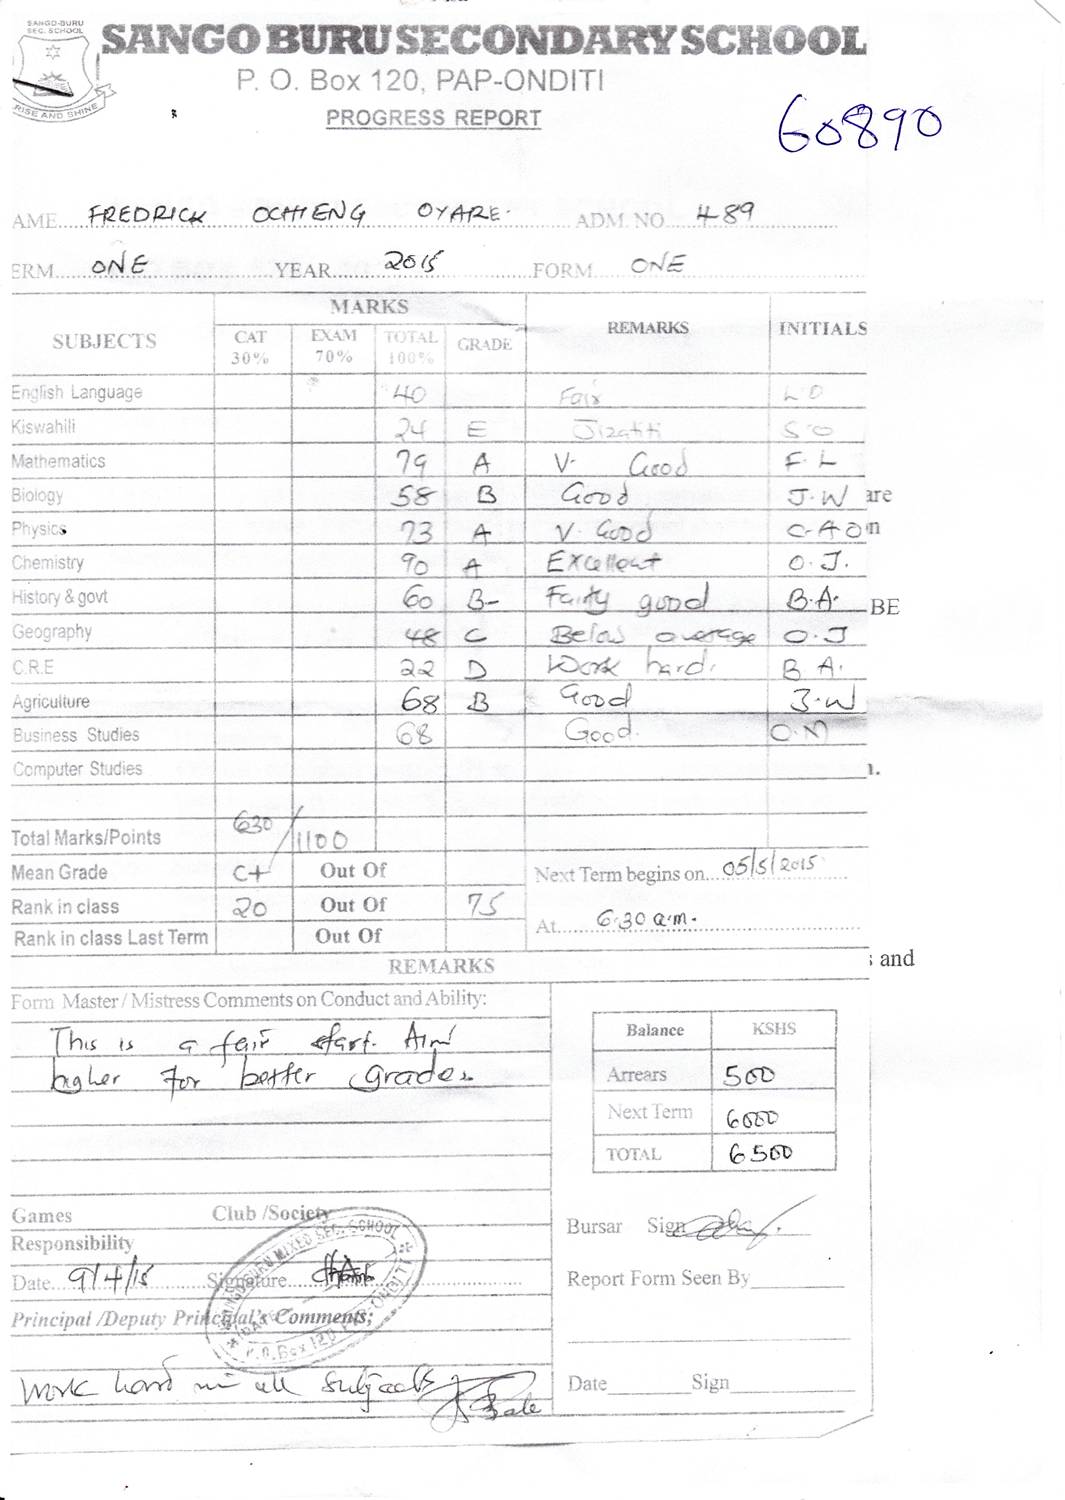 SANGO-BURU
SEC. SCHOOL
RISE AND SHINE
SANGO BURU SECONDARY SCHOOL
P. O. Box 120, PAP-ONDITI
PROGRESS REPORT
60890
AME FREDRICK OCHIENG OYARE. ADM. NO. 489
ERM ONE YEAR 2015 FORM ONE
SUBJECTS MARKS REMARKS INITIALS
CAT 30% EXAM 70% TOTAL 100% GRADE
English Language 40 Fair L.O
Kiswahili 24 E Jizatiti S.O
Mathematics 79 A V. Good F.L
Biology 58 B Good J.W are
Physics 73 A V. Good C.A.O n
Chemistry 90 A Excellent O.J.
History & govt 60 B- Fairly good B.A. BE
Geography 48 C Below average O.J
C.R.E 22 D Work hard. B.A.
Agriculture 68 B Good J.W
Business Studies 68 Good. O.N
Computer Studies
Total Marks/Points 630/1100
Mean Grade C+ Out Of Next Term begins on 05/5/2015
Rank in class 20 Out Of 75
At 6.30 a.m.
Rank in class Last Term Out Of
REMARKS s and
Form Master / Mistress Comments on Conduct and Ability:
This is a fair start. Aim
higher for better grades.
Balance KSHS
Arrears 500
Next Term 6000
TOTAL 6500
Games Club /Society
Responsibility
Bursar Sign
Date 9/4/15 Signature
Report Form Seen By
Principal /Deputy Principal's Comments;
SANGO BURU MIXED SEC. SCHOOL
DATE
P.O. Box 120, PAP-ONDITI
Work hard in all subjects
Date Sign